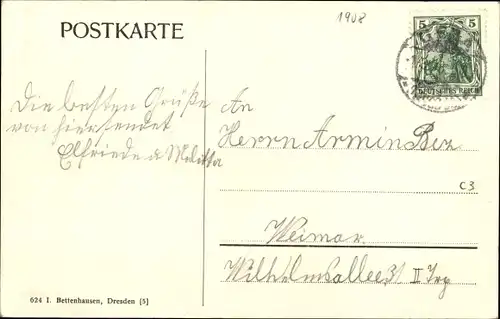 POSTKARTE
1908
5 5
DEUTSCHES REICH
Die besten Grüße
von hier sendet
Elfriede u Melitta
An
Herrn Armin Bez
C3
Weimar
Wilhelmsallee 31 II Trg
624 I. Bettenhausen, Dresden [5]